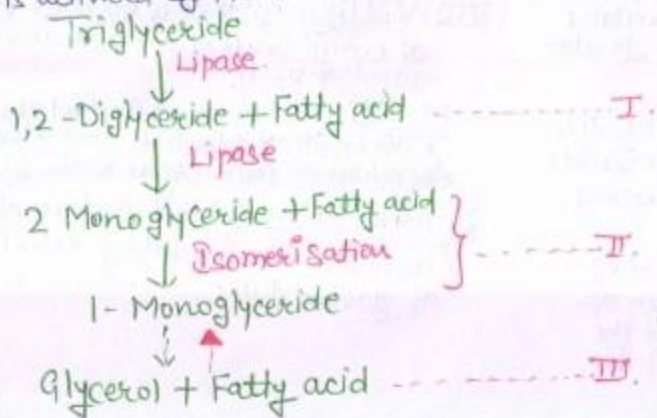 Triglyceride
Lipase
1,2-Diglyceride + Fatty acid ---------- I.
Lipase
2 Monoglyceride + Fatty acid
Isomerisation ------ II.
1-Monoglyceride
Glycerol + Fatty acid ---------- III.